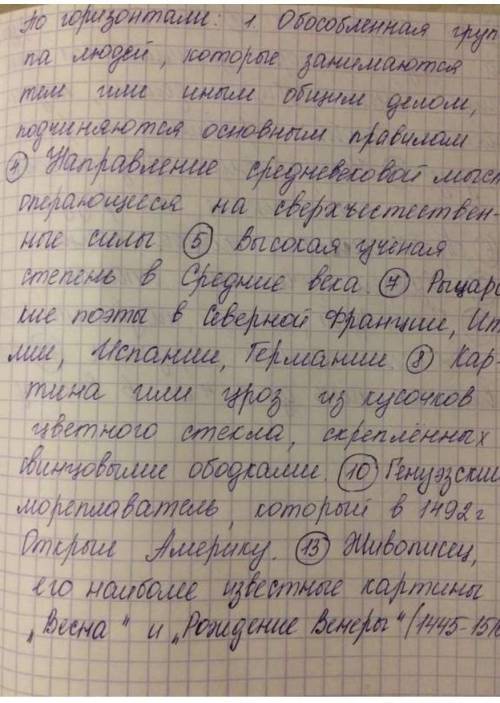 По горизонтали: 1. Обособленная груп
па людей, которые занимаются
тем или иным общим делом,
подчиняются основным правилам
4 Направление средневековой мысл
операющееся на сверхъестествен-
ные силы 5 Высокая учёная
степень в Средние века. 7 Рыцарс
кие поэты в Северной Франции, Ит
лии, Испании, Германии. 8 Кар-
тина или узоз из кусочков
цветного стекла, скреплённых
свинцовыми ободками. 10 Генуэзский
мореплаватель, который в 1492г
Открыл Америку. 13 Живописец,
его наиболее известные картины
„Весна" и „Рождение Венеры" (1445-1510